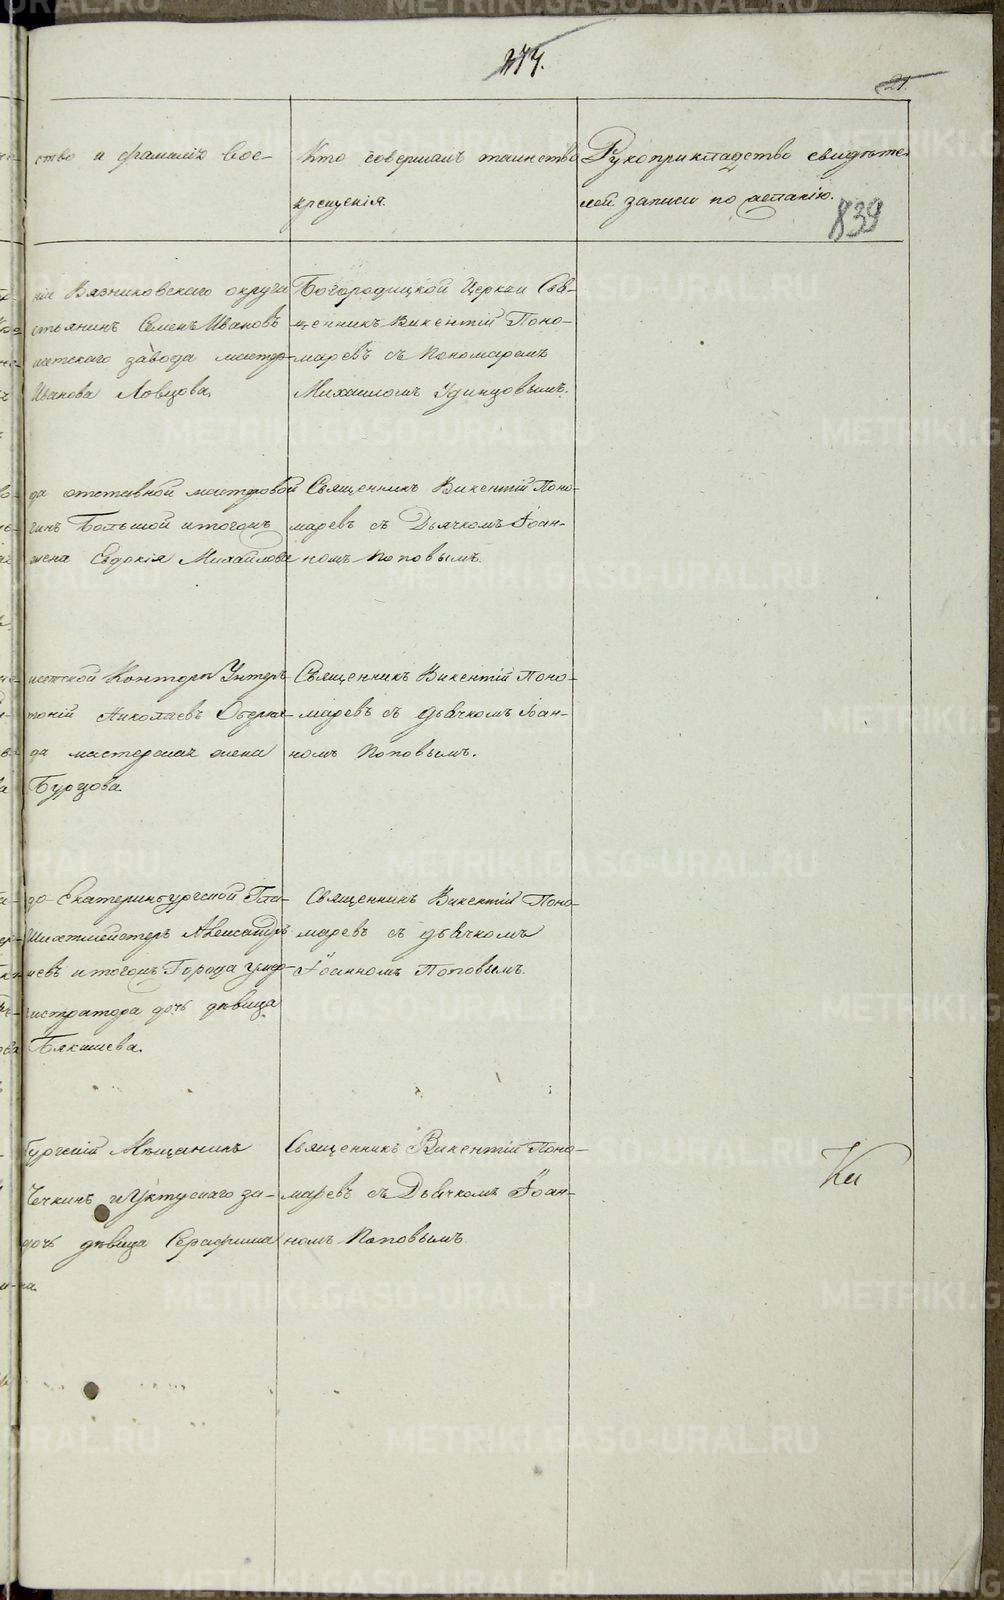 274.
21.
ство и фамилія вос-
Кто совершалъ таинство
крещенія.
Рукоприкладство свидѣте-
лей записи по желанію.
839
ніи Вязниковскаго округа
стьянинъ Семенъ Ивановъ
исетскаго завода мастер-
Иванова Ловцова.
Богородицкой Церкви Свя-
щенникъ Викентій Поно-
маревъ съ Пономаремъ
Михаиломъ Удинцовымъ.
да отставной мастеровой
гинъ Большой и тогожъ
жена Евдокія Михайлова
Священникъ Викентій Поно-
маревъ съ Дьячкомъ Іоан-
номъ Поповымъ.
исетской Конторы Унтеръ
тоній Николаевъ
да мастерская жена
Бурцова.
Священникъ Викентій Поно-
маревъ съ дьячкомъ Іоан-
номъ Поповымъ.
до-Екатеринбургской Гла-
Шихтмейстеръ Александръ
чевъ и тогожъ Города
гистратора дочь дѣвица
Бякишева.
Священникъ Викентій Поно-
маревъ съ дьячкомъ
Іоанномъ Поповымъ.
бургскій Мѣщанинъ
Чечкинъ и Уктускаго за-
дочь дѣвица Серафима
на.
Священникъ Викентій Поно-
маревъ съ Дьячкомъ Іоан-
номъ Поповымъ
Ки
METRIKI.GASO-URAL.RU